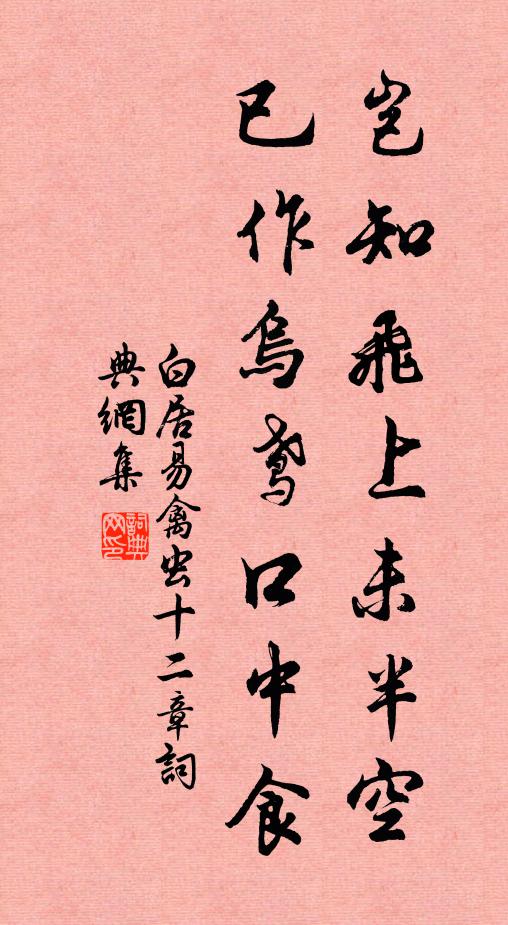 豈知飛上未半空
已作烏鳶口中食
白居易禽虫十二章詞
典網集
詞典
网印